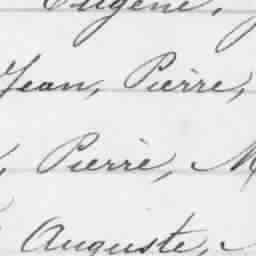 Eugène,
Jean, Pierre,
Pierre, M
Auguste,